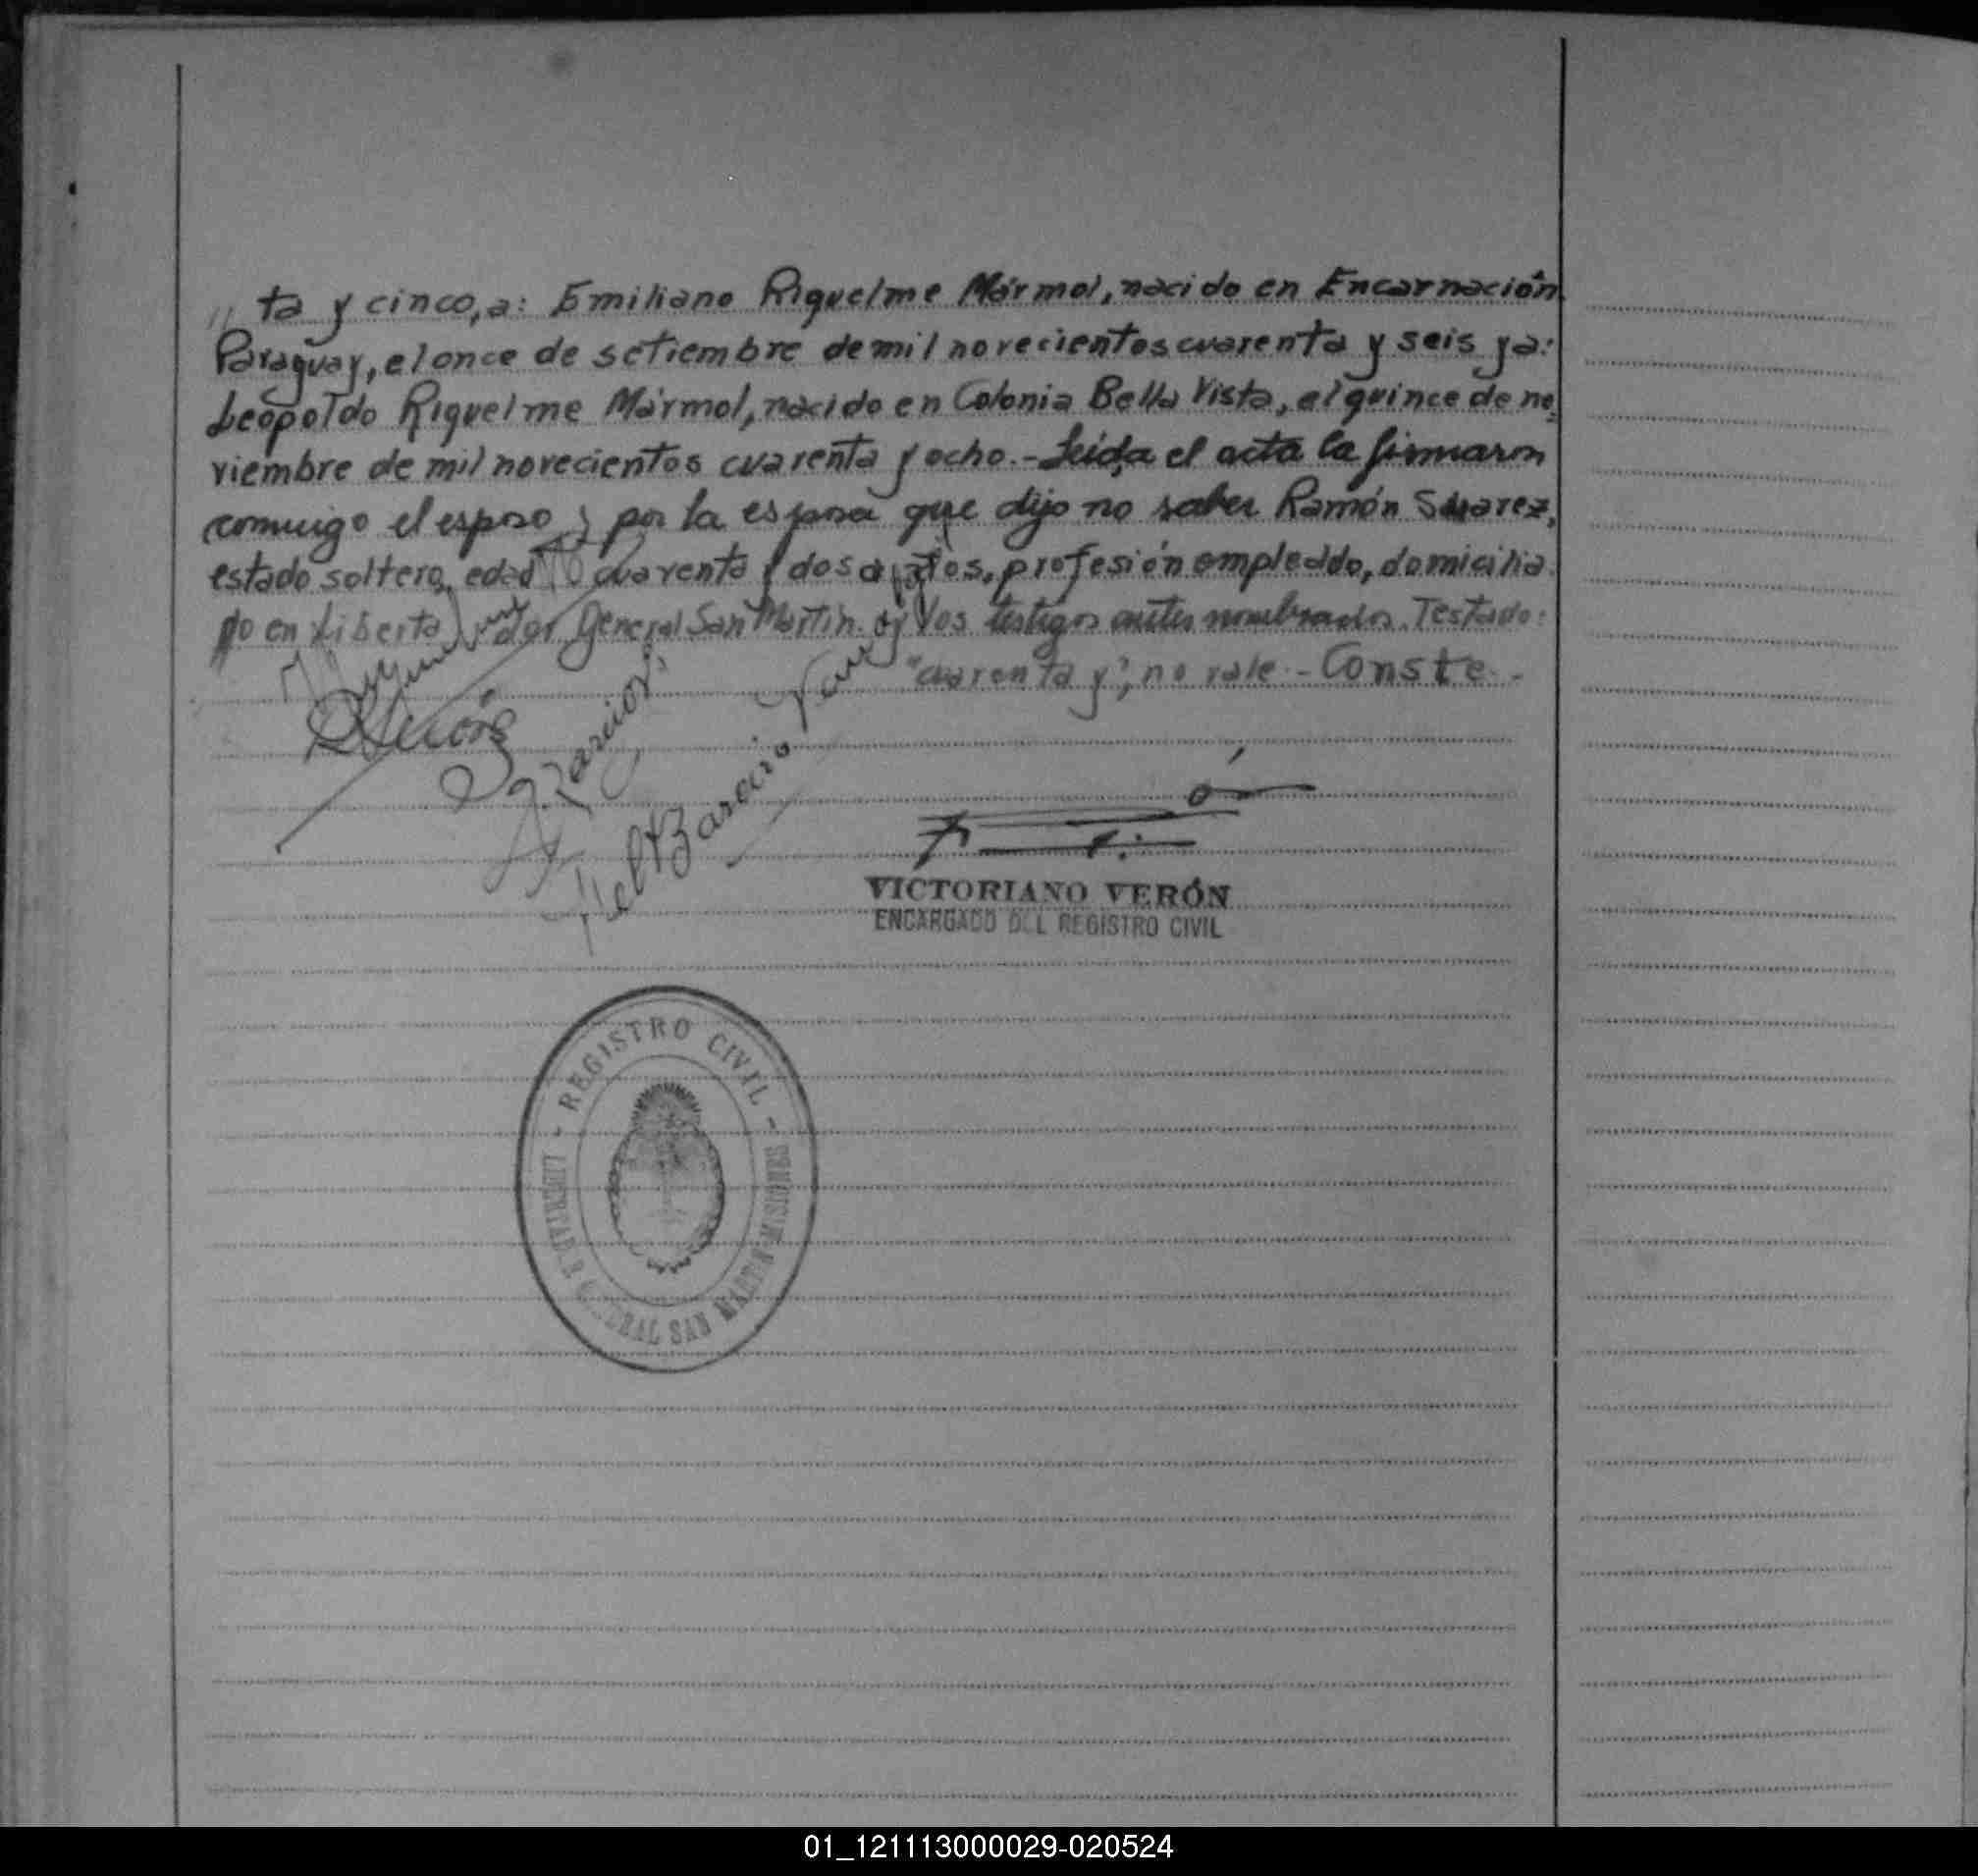 " ta y cinco, a: Emiliano Riquelme Mármol, nacido en Encarnación
Paraguay, el once de setiembre de mil novecientos cuarenta y seis y a:
Leopoldo Riquelme Mármol, nacido en Colonia Bella Vista, el quince de no
viembre de mil novecientos cuarenta y ocho.- Leida el acta la firmaron
conmigo el esposo y por la esposa que dijo no saber Ramón Suarez,
estado soltero, edad cuarenta y dos años, profesión empleado, domicilia
do en Libertador General San Martín. y los testigos antes nombrados. Testado:
"cuarenta y", no vale.- Conste.-
VICTORIANO VERÓN
ENCARGADO DEL REGISTRO CIVIL
- REGISTRO CIVIL -
LIBERTADOR GENERAL SAN MARTIN-MISIONES
01_121113000029-020524